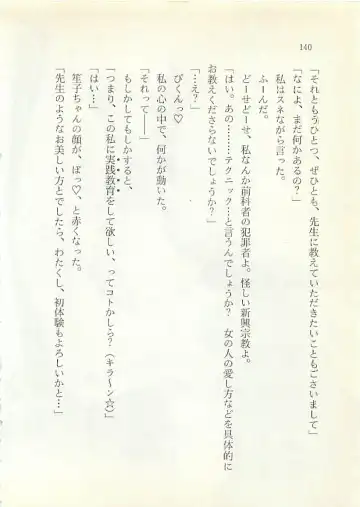 140
「それともうひとつ、ぜひとも、先生に教えていただきたいこともございまして」
「なによ、まだ何かあるの？」
私はスネながら言った。
ふーんだ。
どーせどーせ、私なんか前科者の犯罪者よ。怪しい新興宗教よ。
「はい。あの………テクニック…と言うんでしょうか？　女の人の愛し方などを具体的に
お教えくださらないでしょうか？」
「…え？」
ぴくんっ♡
私の心の中で、何かが動いた。
「それって――」
もしかしてもしかすると、
「つまり、この私に実践教育をして欲しい、ってコトかしら？（キラ～ン☆）」
「はい…」
笙子ちゃんの顔が、ぽっ♡、と赤くなった。
「先生のようなお美しい方とでしたら、わたくし、初体験もよろしいかと…」